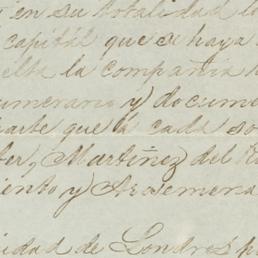 en su totalidad lo
capital que se haya
elta la compañia
umerario y docume
parte que á cada so
ber, Martinez del R
iento y Arosemena
idad de Londres p